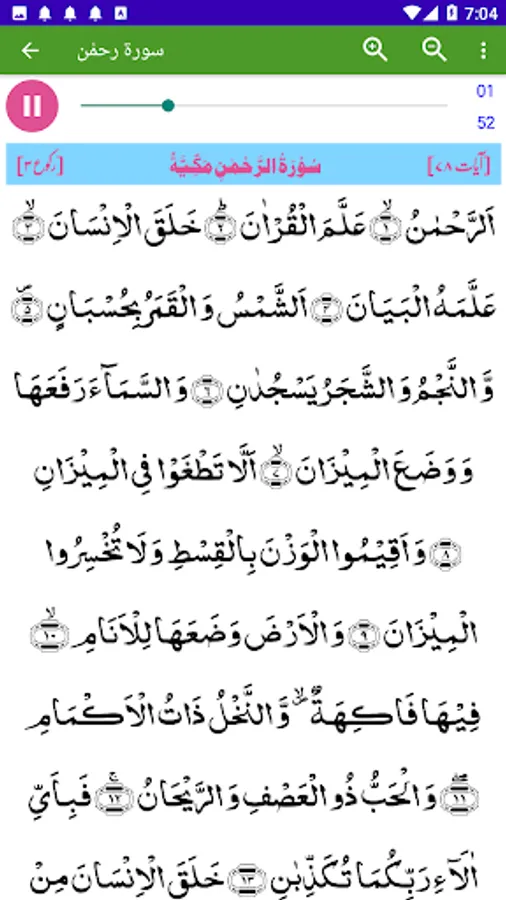 7:04
سورة رحمٰن
01
52
[آیات ۷۸] سُوْرَةُ الرَّحْمٰنِ مَكِّيَّةٌ [رکوع ۳]
اَلرَّحْمٰنُ ۙ﴿۱﴾ عَلَّمَ الْقُرْاٰنَ ؕ﴿۲﴾ خَلَقَ الْاِنْسَانَ ۙ﴿۳﴾
عَلَّمَهُ الْبَيَانَ ﴿۴﴾ اَلشَّمْسُ وَالْقَمَرُ بِحُسْبَانٍ ﴿۵﴾
وَّالنَّجْمُ وَالشَّجَرُ يَسْجُدٰنِ ﴿۶﴾ وَالسَّمَآءَ رَفَعَهَا
وَوَضَعَ الْمِيْزَانَ ۙ﴿۷﴾ اَلَّا تَطْغَوْا فِى الْمِيْزَانِ
﴿۸﴾ وَاَقِيْمُوا الْوَزْنَ بِالْقِسْطِ وَلَا تُخْسِرُوا
الْمِيْزَانَ ﴿۹﴾ وَالْاَرْضَ وَضَعَهَا لِلْاَنَامِ ۙ﴿۱۰﴾
فِيْهَا فَاكِهَةٌ ۙ وَّالنَّخْلُ ذَاتُ الْاَكْمَامِ
﴿۱۱﴾ وَالْحَبُّ ذُو الْعَصْفِ وَالرَّيْحَانُ ۚ﴿۱۲﴾ فَبِاَىِّ
اٰلَآءِ رَبِّكُمَا تُكَذِّبٰنِ ﴿۱۳﴾ خَلَقَ الْاِنْسَانَ مِنْ